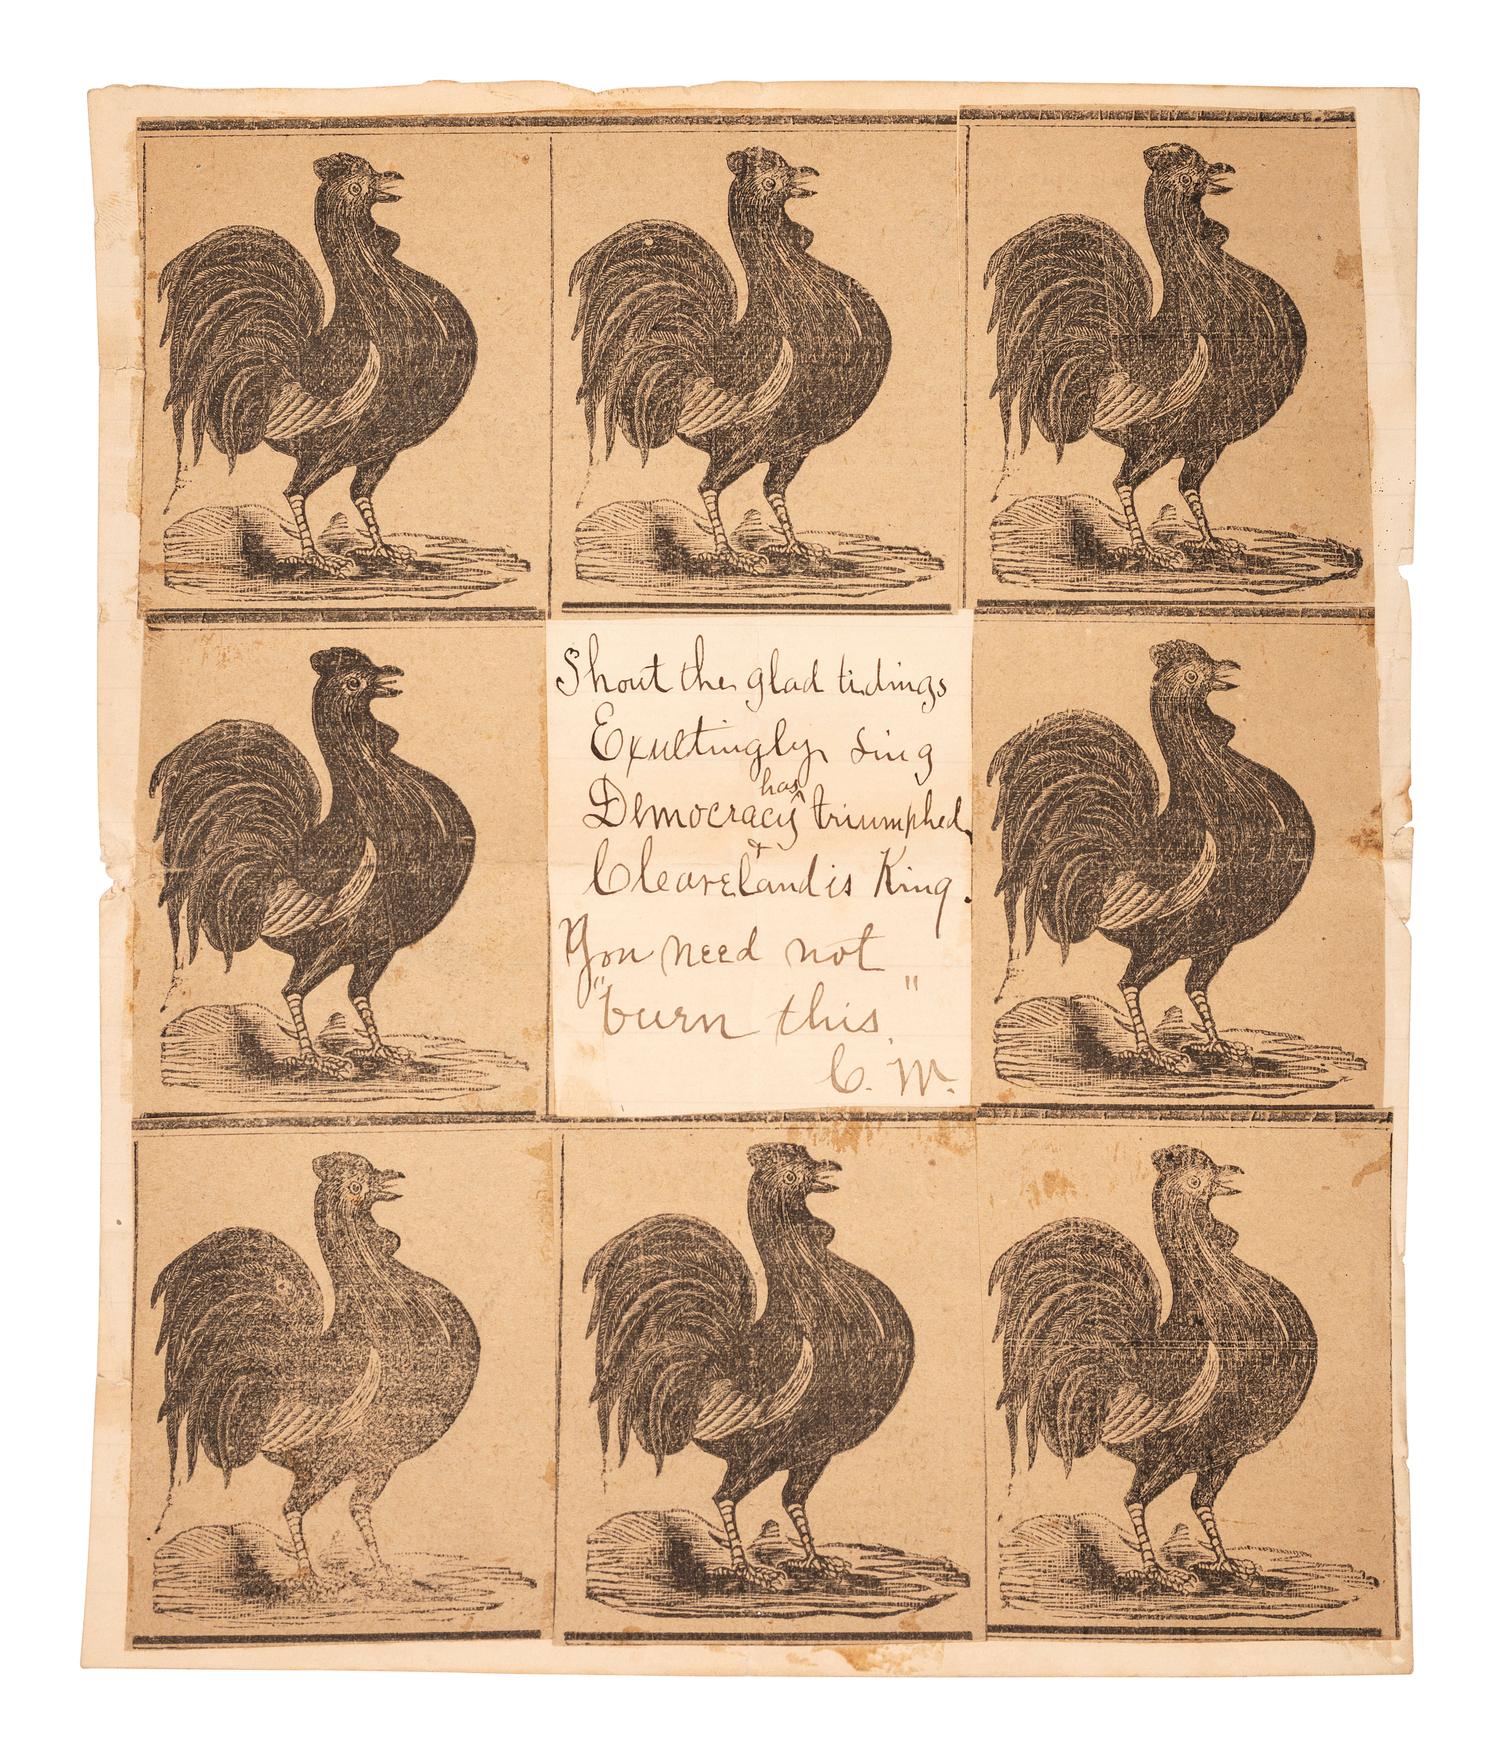 Shout the glad tidings
Exultingly sing
Democracy has triumphed
& Cleaveland is King.
You need not
"burn this"
C. M.